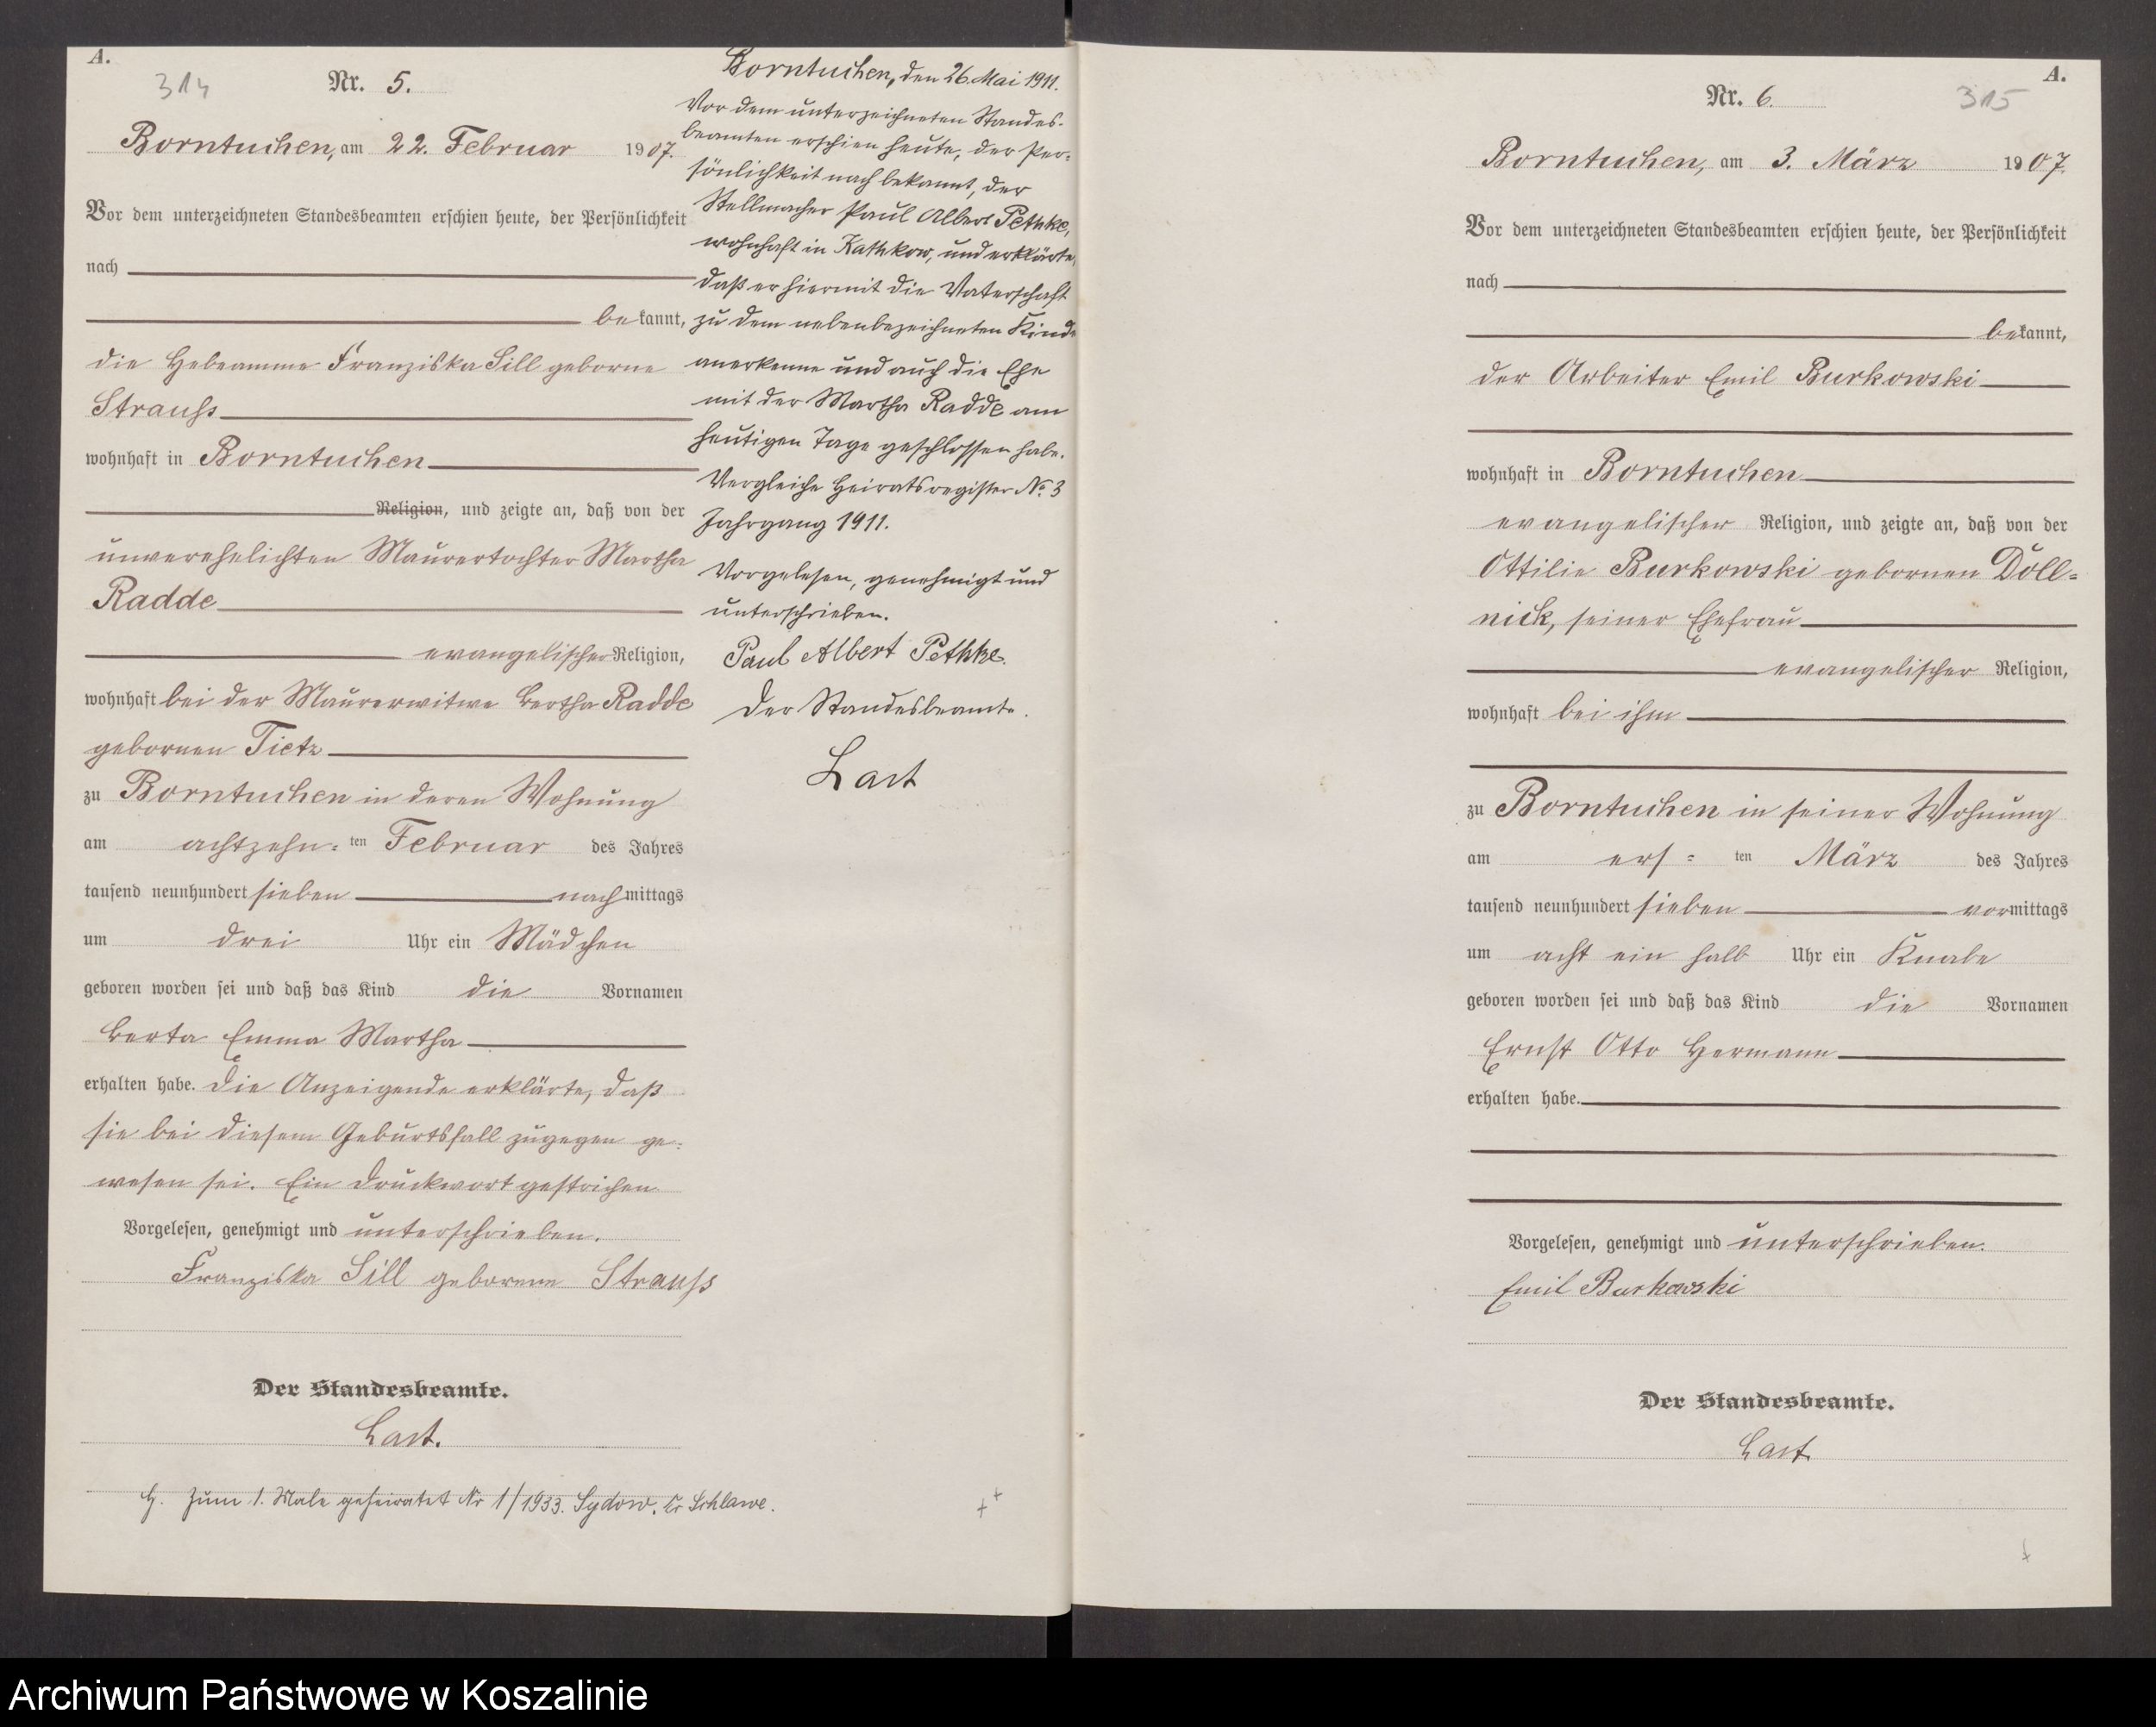 A.
314
Nr. 5.
Borntuchen, am 22. Februar 1907.
Vor dem unterzeichneten Standesbeamten erschien heute, der Persönlichkeit
nach
bekannt,
die Hebeamme Franziska Sill geborne
Strauss
wohnhaft in Borntuchen
Religion, und zeigte an, daß von der
unverehelichten Maurertochter Martha
Radde
evangelischer Religion,
wohnhaft bei der Maurerwitwe Bertha Radde
gebornen Tietz
zu Borntuchen in deren Wohnung
am achtzehn-ten Februar des Jahres
tausend neunhundert sieben nachmittags
um drei Uhr ein Mädchen
geboren worden sei und daß das Kind die Vornamen
Berta Emma Martha
erhalten habe. Die Anzeigende erklärte, daß
sie bei diesem Geburtsfall zugegen ge-
wesen sei. Ein Druckwort gestrichen
Vorgelesen, genehmigt und unterschrieben.
Franziska Sill geborene Strauss
Der Standesbeamte.
Last.
H. Zum 1. Male geheiratet Nr 1/1933. Sydow, Kr Schlawe.
Borntuchen, den 26. Mai 1911.
Vor dem unterzeichneten Standes-
beamten erschien heute, der Per-
sönlichkeit nach bekannt, der
Stellmacher Paul Albert Pethke,
wohnhaft in Kathkow, und erklärte,
daß er hiermit die Vaterschaft
zu dem nebenbezeichneten Kinde
anerkenne und auch die Ehe
mit der Martha Radde am
heutigen Tage geschlossen habe.
Vergleiche Heiratsregister No. 3
Jahrgang 1911.
Vorgelesen, genehmigt und
unterschrieben.
Paul Albert Pethke.
Der Standesbeamte.
Last
A.
315
Nr. 6.
Borntuchen, am 3. März 1907.
Vor dem unterzeichneten Standesbeamten erschien heute, der Persönlichkeit
nach
bekannt,
der Arbeiter Emil Burkowski
wohnhaft in Borntuchen
evangelischer Religion, und zeigte an, daß von der
Ottilie Burkowski gebornen Döll-
nick, seiner Ehefrau
evangelischer Religion,
wohnhaft bei ihm
zu Borntuchen in seiner Wohnung
am ers-ten März des Jahres
tausend neunhundert sieben vormittags
um acht ein halb Uhr ein Knabe
geboren worden sei und daß das Kind die Vornamen
Ernst Otto Hermann
erhalten habe.
Vorgelesen, genehmigt und unterschrieben.
Emil Burkowski
Der Standesbeamte.
Last.
Archiwum Państwowe w Koszalinie